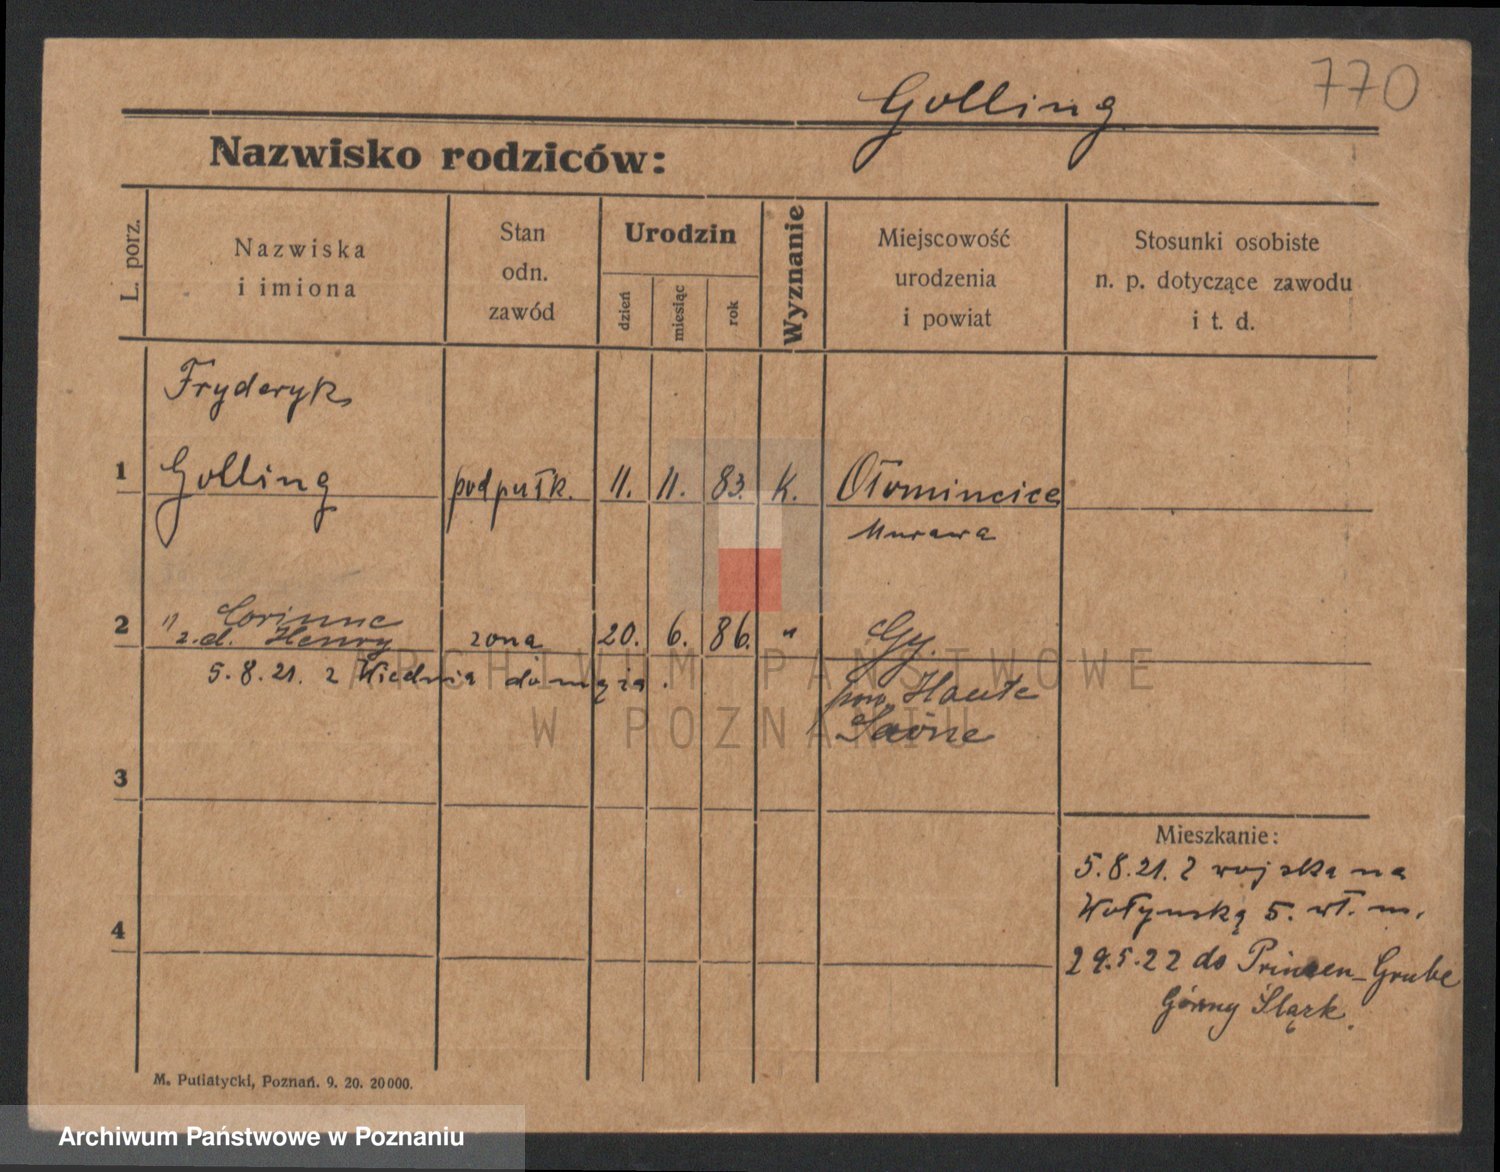 770
Golling
Nazwisko rodziców:
L. porz.
Nazwiska
i imiona
Stan
odn.
zawód
Urodzin
dzień
miesiąc
rok
Wyznanie
Miejscowość
urodzenia
i powiat
Stosunki osobiste
n. p. dotyczące zawodu
i t. d.
Fryderyk
1 Golling podpułk. 11. 11. 83. K. Ołomincice
Murawa
" Corinne
2 z. d. Henry zona 20. 6. 86. " Gy.
5.8.21. z Wiednia do męża.
pow. Haute
Saône
3
4
Mieszkanie:
5.8.21. z wojska na
Wołynską 5. wł. m.
29.5.22 do Prinzen-Grube
Górny Śląsk.
M. Putiatycki, Poznań. 9. 20. 20000.
ARCHIWUM PAŃSTWOWE
W POZNANIU
Archiwum Państwowe w Poznaniu